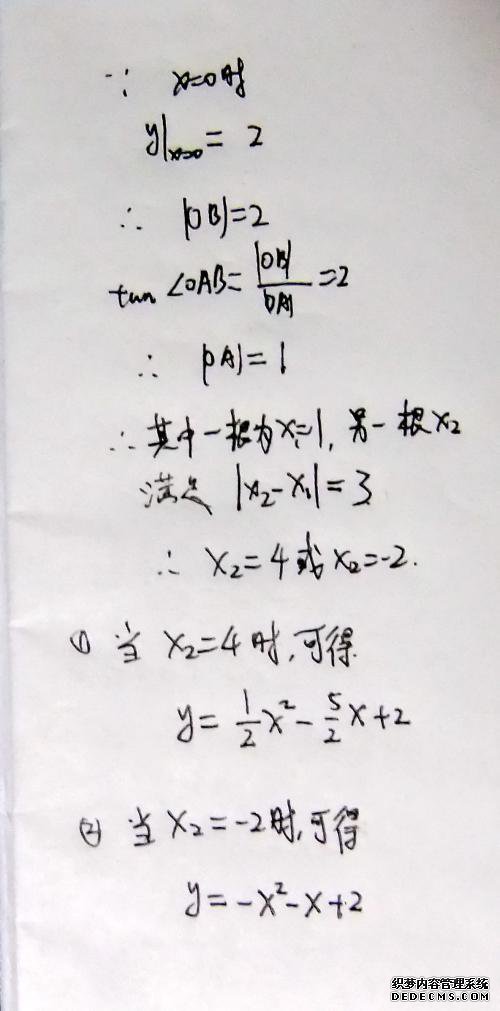 ∵ x=0时
y|x=0 = 2
∴ |OB|=2
tan ∠OAB= |OB|/|OA| =2
∴ |OA|=1
∴ 其中一根为x₁=1, 另一根x₂
满足 |x₂-x₁|=3
∴ x₂=4或x₂=-2.
① 当 x₂=4时,可得
y= 1/2 x² - 5/2 x+2
② 当 x₂=-2时,可得
y=-x²-x+2
织梦内容管理系统
DEDECMS.COM